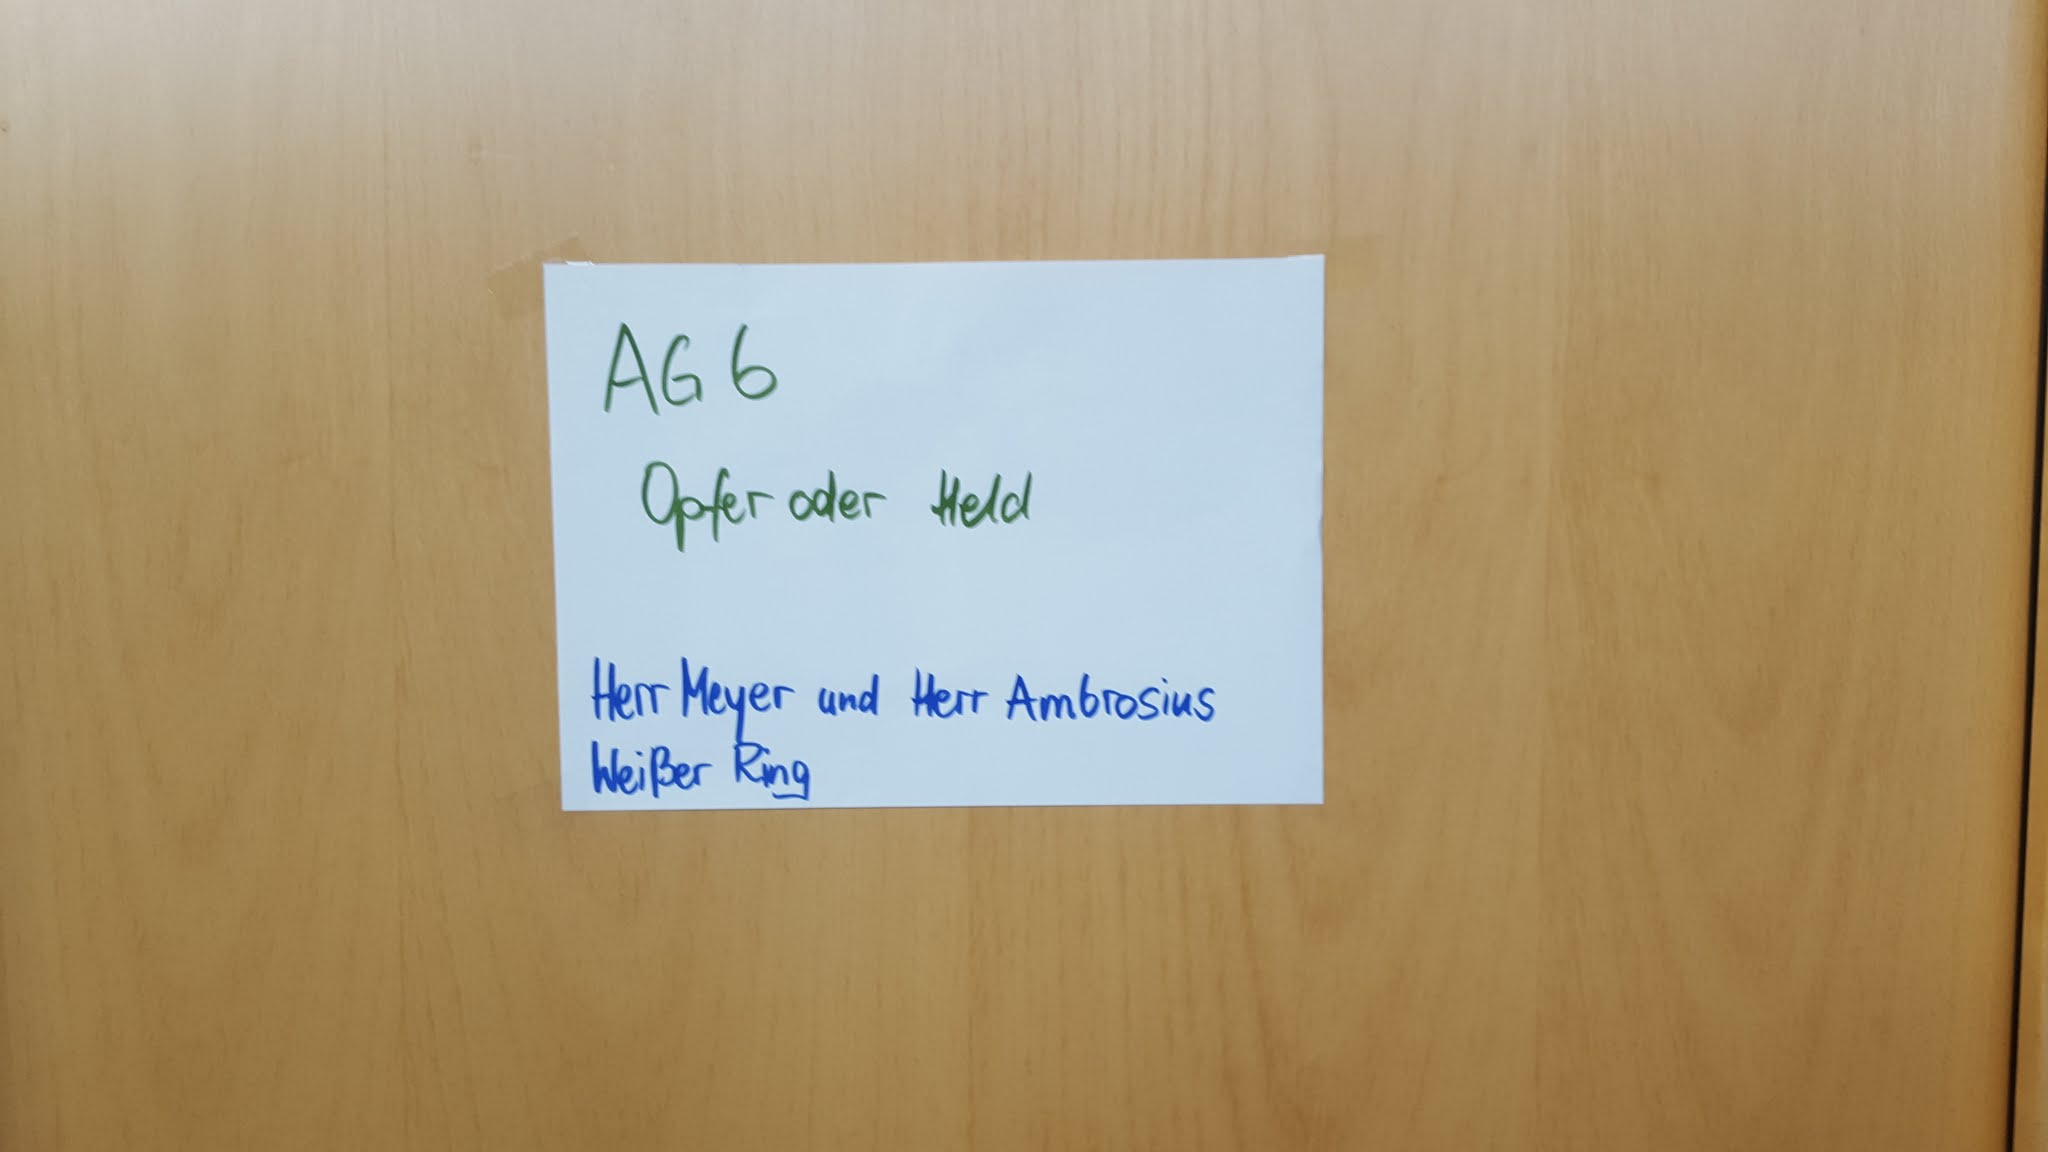 AG 6
Opfer oder Held
Herr Meyer und Herr Ambrosius
Weißer Ring